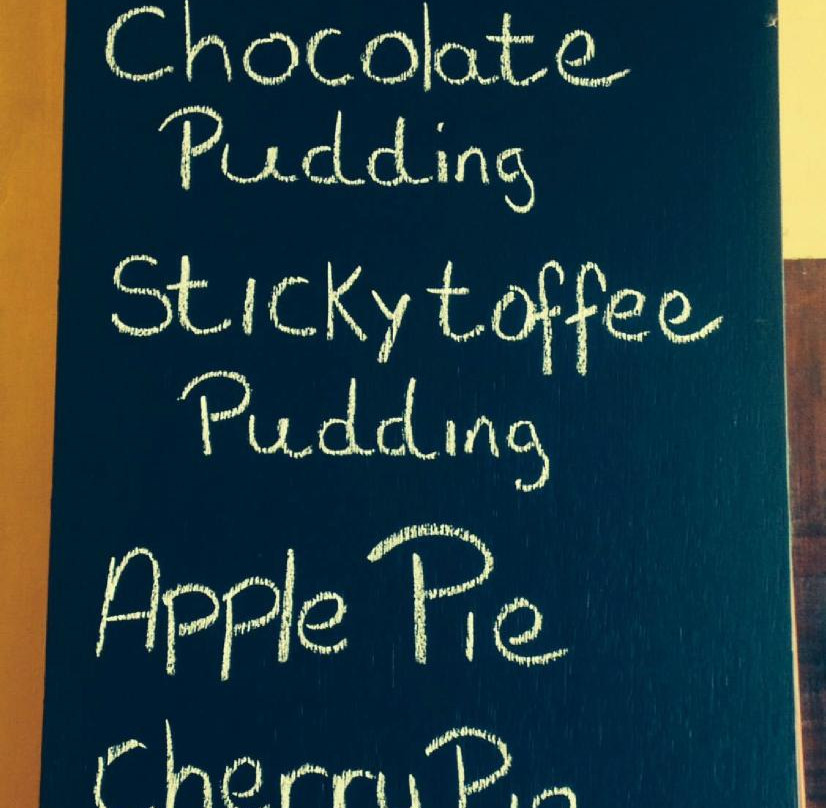 Chocolate
Pudding
Sticky toffee
Pudding
Apple Pie
Cherry Pie